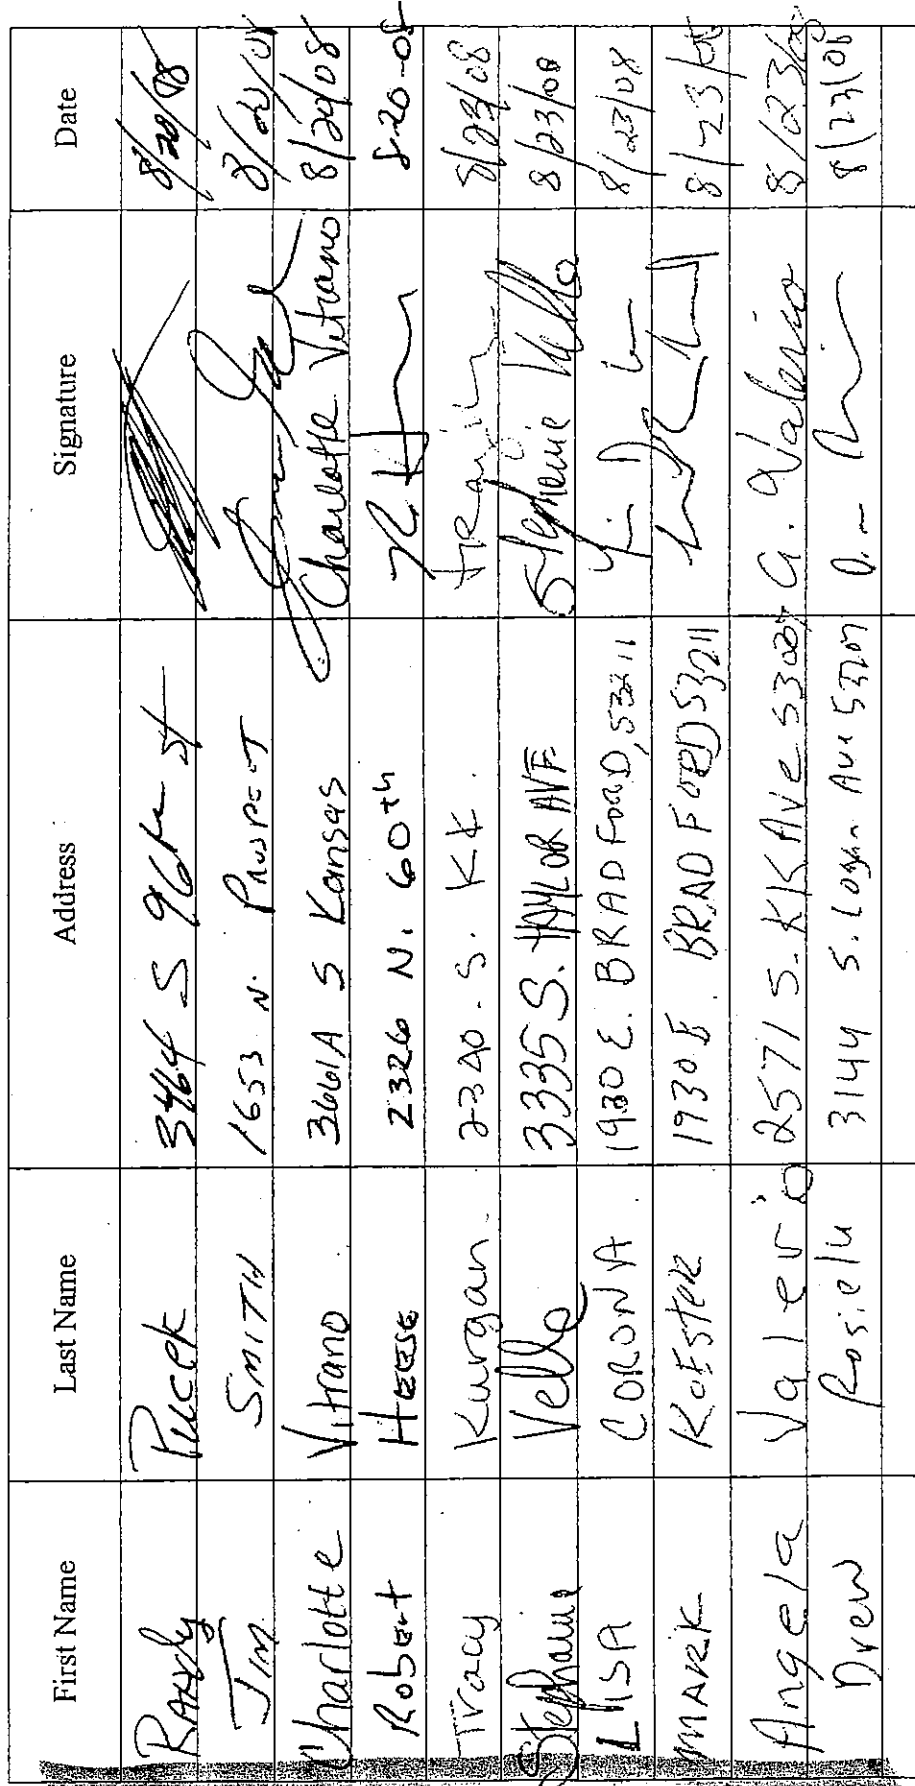 First Name Last Name Address Signature Date
Randy Pucek 3464 S 96th St 8/20/08
Jim SMITH 1653 N. PROSPECT 8/20/08
Charlotte Vitrano 3661A S Kansas Charlotte Vitrano 8/20/08
Robert HEESE 2326 N. 60th 8-20-08
Tracy Kurgan. 2340. S. KK. 8/23/08
Stephanie Vello 3335 S. TAYLOR AVE. Stephanie Vello 8/23/08
LISA CORONA. 1930 E. BRADFORD, 53211 8/23/08
MARK KOESTER 1930 E. BRADFORD 53211 8/23/08
Angela Valerio 2571 S. KK Ave 53207 A. Valerio 8/23/08
Drew Rosielu 3144 S. Logan Ave 53207 8/23/08